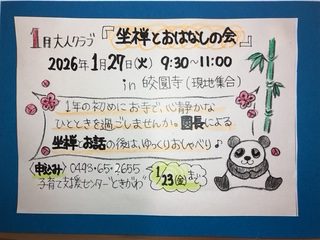 1月大人クラブ『坐禅とおはなしの会』
2026年1月27日(火) 9:30~11:00
in 皎圓寺(現地集合)
1年の初めにお寺で、心静かな
ひとときを過ごしませんか。園長による
坐禅とお話の後は、ゆっくりおしゃべり♪
申込み→0493・65・2655
子育て支援センター"ときがわ"
1/23(金)まで